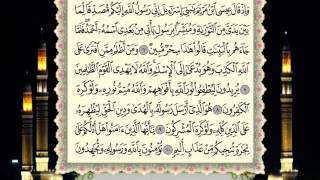 وَإِذْ قَالَ عِيسَى ٱبْنُ مَرْيَمَ يَٰبَنِىٓ إِسْرَٰٓءِيلَ إِنِّى رَسُولُ ٱللَّهِ إِلَيْكُم مُّصَدِّقًا لِّمَا
بَيْنَ يَدَىَّ مِنَ ٱلتَّوْرَىٰةِ وَمُبَشِّرًۢا بِرَسُولٍ يَأْتِى مِنۢ بَعْدِى ٱسْمُهُۥٓ أَحْمَدُ فَلَمَّا
جَآءَهُم بِٱلْبَيِّنَٰتِ قَالُوا۟ هَٰذَا سِحْرٌ مُّبِينٌ ٦ وَمَنْ أَظْلَمُ مِمَّنِ ٱفْتَرَىٰ عَلَى
ٱللَّهِ ٱلْكَذِبَ وَهُوَ يُدْعَىٰٓ إِلَى ٱلْإِسْلَٰمِ وَٱللَّهُ لَا يَهْدِى ٱلْقَوْمَ ٱلظَّٰلِمِينَ
٧ يُرِيدُونَ لِيُطْفِـُٔوا۟ نُورَ ٱللَّهِ بِأَفْوَٰهِهِمْ وَٱللَّهُ مُتِمُّ نُورِهِۦ وَلَوْ كَرِهَ
ٱلْكَٰفِرُونَ ٨ هُوَ ٱلَّذِىٓ أَرْسَلَ رَسُولَهُۥ بِٱلْهُدَىٰ وَدِينِ ٱلْحَقِّ لِيُظْهِرَهُۥ
عَلَى ٱلدِّينِ كُلِّهِۦ وَلَوْ كَرِهَ ٱلْمُشْرِكُونَ ٩ يَٰٓأَيُّهَا ٱلَّذِينَ ءَامَنُوا۟ هَلْ أَدُلُّكُمْ عَلَىٰ
تِجَٰرَةٍ تُنجِيكُم مِّنْ عَذَابٍ أَلِيمٍ ١٠ تُؤْمِنُونَ بِٱللَّهِ وَرَسُولِهِۦ وَتُجَٰهِدُونَ